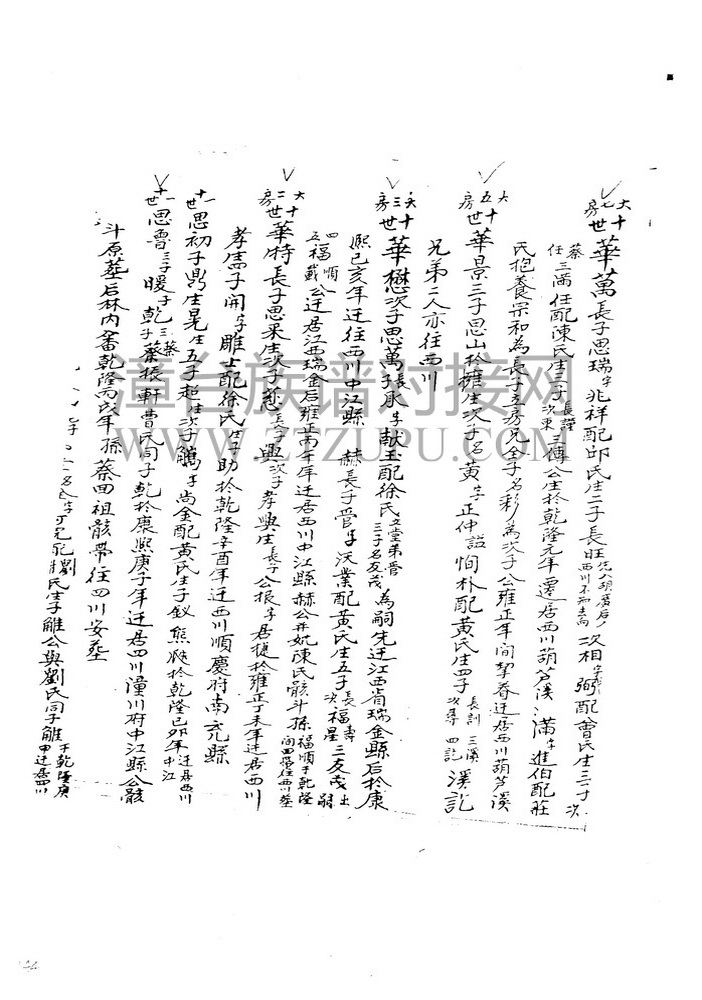 大七房 十世 華萬長子思瑞字兆祥配邱氏生二子長旺先入胡廣后西川不知去向次相字 弼配曾氏生三子次
蔡任三滿任配陳氏生三子長謹次東三傳公生於乾隆元年遷居西川葫芦溪滿字進伯配莊
氏抱養宗和為長子五房兄全子名彩為次子公雍正年間挈眷迁居西川葫芦溪
大五房 十世 華景三子思山於權生次子名黄字正仲諡恂朴配黄氏生四子長訓三溪次尋四記溪記
兄弟二人亦往西川
大三房 十世 華懋次子思萬子長永字献玉配徐氏立堂弟管三子名友茂為嗣先迁江西省瑞金縣后於康
熙己亥年迁往西川中江縣 赫長子管字沃業配黄氏生五子長壽次福星三友茂出嗣
四福順五福戴公迁居江西瑞金后雍正丙午年迁居西川中江縣赫公并妣陳氏骸斗孫福順于乾隆间田帶往西川葬
大二房 十世 華特長子思采生次子慈長子興次子孝興生長子公振字居梃於雍正丁未年迁居西川
孝孟子開字雕士配徐氏生子助於乾隆辛酉年迁西川順慶府南充縣
十一世 思初子鼎生晃生五子超生次子鵤字尚金配黄氏生子釵熊 於乾隆己卯年迁居西川中江
十一世 思魯三子暖子乾三子蔡字振軒曹氏同子乾於康熙庚子年迁居四川潼川府中江縣公骸
斗原葬后林内畬乾隆丙戌年孫蔡田祖骸帶往四川安葬
氏生子雕公與劉氏同子雕于乾隆庚申迁居四川